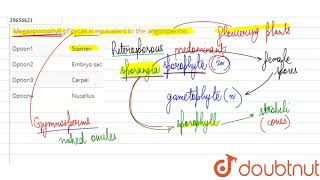 29656621
Megasporophyll of cycas is equivalent to the angiosperms
Flowering plants
Option1 Stamen
Heterosporous predominant
Option2 Embryo sac
sporangia sporophyte (2n)
female spores
Option3 Carpel
gametophyte (n)
Option4 Nucellus
sporophyll
strobili (cones)
Gymnosperms
naked ovules
doubtnut